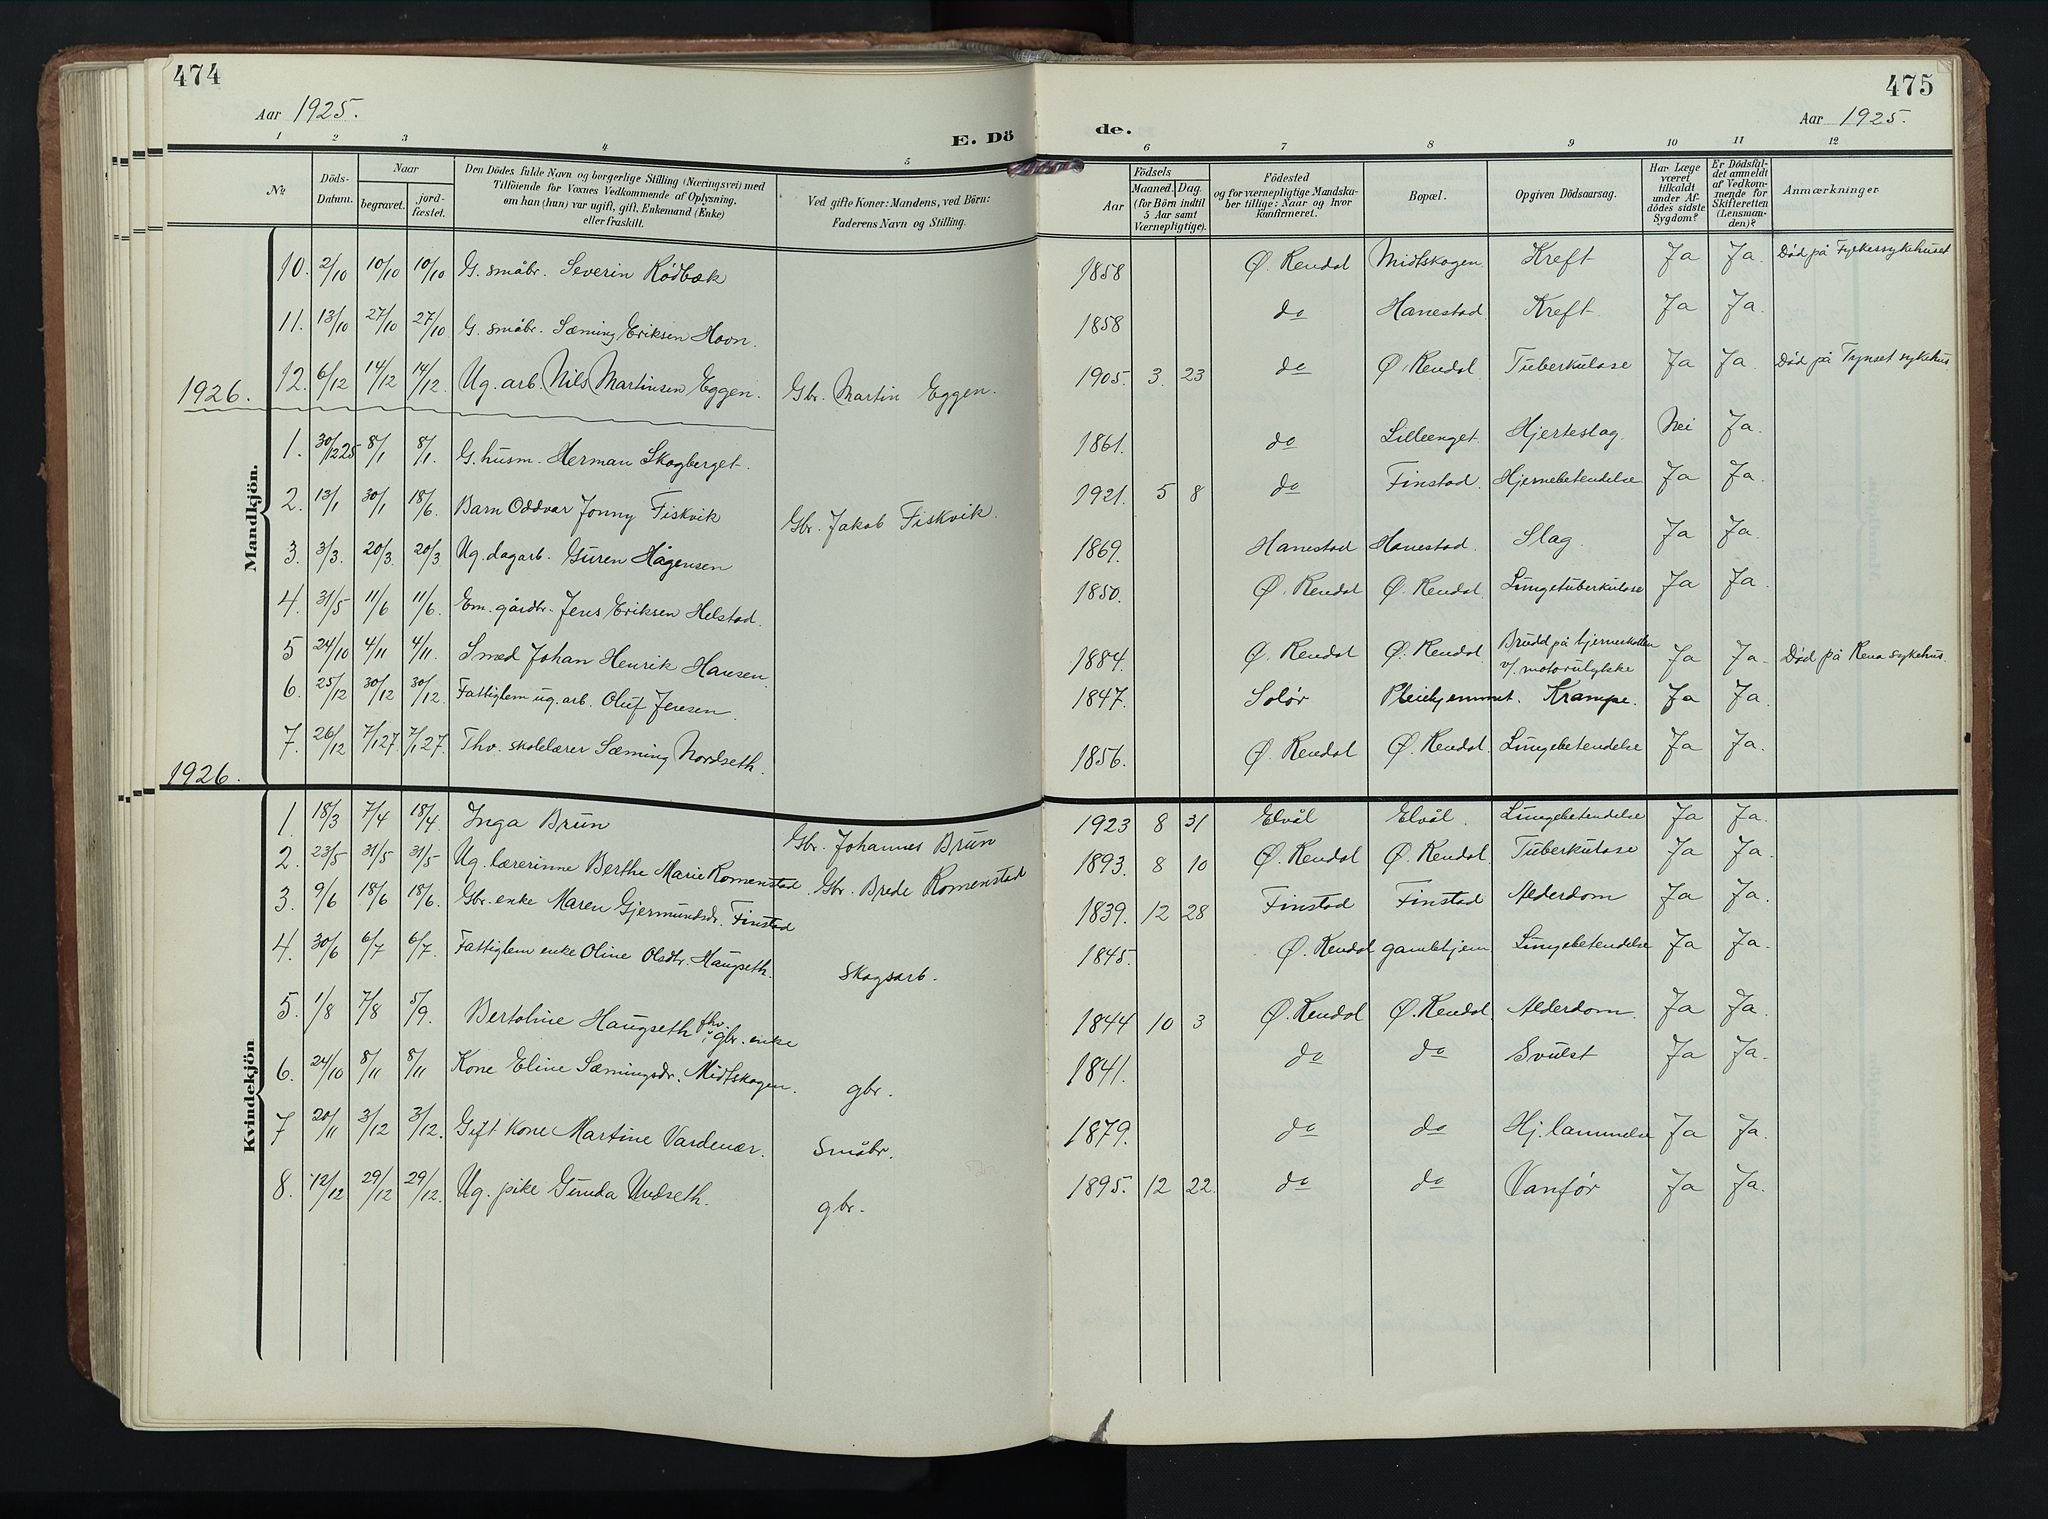 474
475
Aar 1925.
Aar 1925.
E. Dö de.
1 2 3 4 5 6 7 8 9 10 11 12
No
Döds-Datum.
Naar begravet. jordfæstet.
Den Dödes fulde Navn og borgerlige Stilling (Næringsvei) med Tilföiende for Voxnes Vedkommende af Oplysning, om han (hun) var ugift, gift, Enkemand (Enke) eller fraskilt.
Ved gifte Koner: Mandens, ved Börn: Faderens Navn og Stilling.
Födsels Aar Maaned. Dag. (for Börn indtil 5 Aar samt Værnepligtige).
Födested og for værnepligtige Mandskaber tillige: Naar og hvor Konfirmeret.
Bopæl.
Opgiven Dödsaarsag.
Har Læge været tilkaldt under Afdödes sidste Sygdom?
Er Dödsfaldet anmeldt af Vedkommende for Skifteretten (Lensmanden)?
Anmærkninger
Mandkjön.
10. 2/10 10/10 10/10 G. småbr. Severin Rødbæk 1858 Ø. Rendal Midtskogen Kreft Ja Ja. Død på Fylkessykehuset
11. 13/10 27/10 27/10 G. småbr. Sæming Eriksen Hovn. 1858 do Hanestad Kreft. Ja Ja.
12. 6/12 14/12 14/12. Ug. arb. Nils Martinsen Eggen. Gbr. Martin Eggen. 1905. 3. 23 do Ø. Rendal Tuberkulose Ja Ja. Død på Tynset sykehus
1926.
1. 30/12 25 8/1 8/1. G. husm. Herman Skogberget. 1861. do Lilleenget. Hjerteslag. Nei Ja.
2. 13/1 30/1 18/6. Barn Oddvar Jonny Fiskvik Gbr. Jakob Fiskvik. 1921. 5 8 do Finstad. Hjernebetendelse Ja Ja.
3. 3/3. 20/3. 20/3 Ug. dagarb. Guren Hågensen 1869. Hanestad Hanestad. Slag. Ja Ja.
4. 31/5 11/6 11/6. Em. gårdbr. Jens Eriksen Helstad. 1850. Ø. Rendal Ø. Rendal. Lungetuberkulose Ja Ja.
5 24/10 4/11 4/11. Smed Johan Henrik Hansen. 1884. Ø. Rendal Ø. Rendal. Brudd på hjerneskallen v/. motorulykke Ja Ja. Død på Rena sykehus.
6. 25/12 30/12 30/12. Fattiglem ug. arb. Oluf Jensen. 1847. Solør Pleiehjemmet. Krampe. Ja Ja.
7. 26/12 7/1 27. 7/1 27. Fhv. skolelærer Sæming Nordseth. 1856. Ø. Rendal Ø. Rendal. Lungebetendelse Ja Ja.
1926.
Kvindekjön
1. 18/3 7/4 18/4. Inga Brun Gbr. Johannes Brun 1923 8 31 Elvål Elvål. Lungebetendelse Ja Ja.
2. 23/5 31/5 31/5 Ug. lærerinne Berthe Marie Romenstad. Gbr. Brede Romenstad 1893. 8 10 Ø. Rendal Ø. Rendal. Tuberkulose Ja Ja.
3. 9/6 18/6 18/6. Gbr. enke Maren Gjermundsdr. Finstad 1839. 12 28 Finstad Finstad Alderdom Ja Ja.
4. 30/6 6/7 6/7. Fattiglem enke Oline Olsdtr. Haugseth. Skogsarb. 1845. Ø. Rendal gamlehjem Lungebetendelse Ja Ja.
5. 1/8 7/8 5/9. Bertoline Haugseth fhv. gbr. enke 1844 10 3 Ø. Rendal Ø. Rendal. Alderdom. Ja Ja.
6. 24/10 8/11 8/11 Kone Eline Sæmingsdr. Midtskogen. gbr. 1841. do do Svulst Ja Ja.
7 20/11 3/12 3/12. Gift kone Martine Vardenær. småbr. 1879. do do Hj. lammelse Ja Ja.
8. 12/12 29/12 29/12. Ug. pike Gunda Undseth. gbr. 1895. 12 22. do do Vanfør Ja Ja.